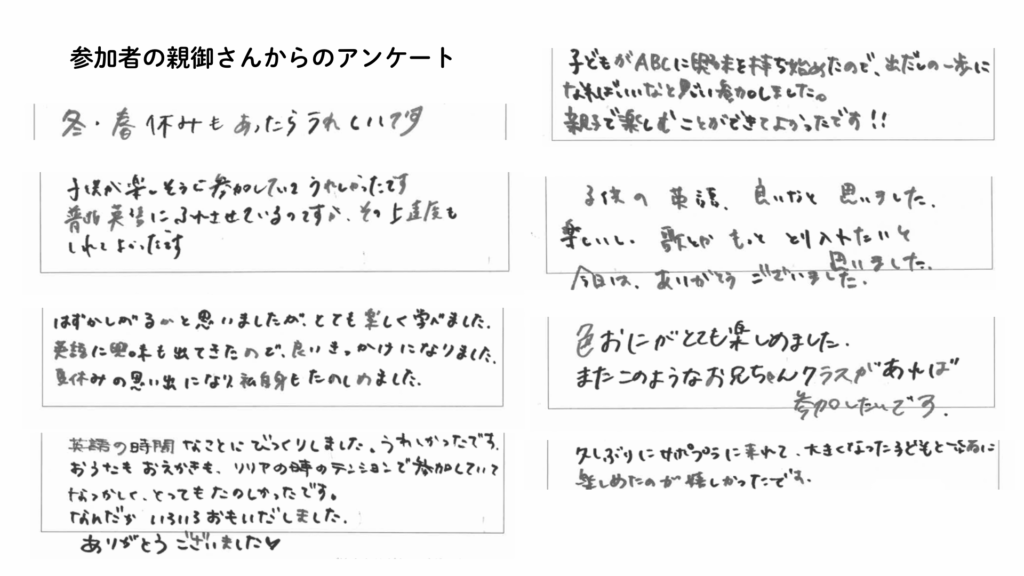 参加者の親御さんからのアンケート
冬・春休みもあったらうれしいです
子供が楽しそうに参加していてうれしかったです
普段英語にふれさせているのですが、その上達度も
しれてよかったです
はずかしがるかと思いましたが、とても楽しく学べました。
英語に興味も出てきたので、良いきっかけになりました。
夏休みの思い出になり私自身もたのしめました。
英語の時間なことにびっくりしました。うれしかったです。
おうたもおえかきも、リリアの時のテンションで参加していて
なつかしく、とってもたのしかったです。
なんだかいろいろおもいだしました。
ありがとうございました♥
子どもがABCに興味を持ち始めたので、出だしの一歩に
なればいいなと思い参加しました。
親子で楽しむことができてよかったです!!
子供の英語、良いなと思いました。
楽しいし、歌とかもっととり入れたいと
思いました。
今日は、ありがとうございました。
色おにがとても楽しめました。
またこのようなお兄ちゃんクラスがあれば
参加したいです。
久しぶりにサポプラに来れて、大きくなった子どもと
楽しめたのが嬉しかったです。